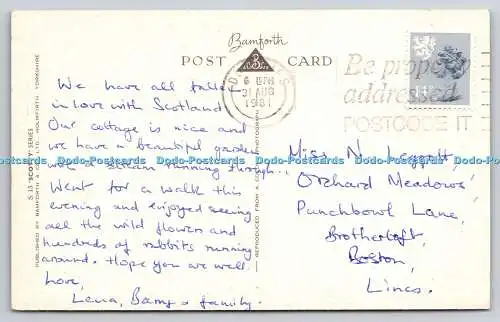 Bamforth
POST CARD
We have all fallen
in love with Scotland
Our cottage is nice and
we have a beautiful garden
with a stream running through...
Went for a walk this
evening and enjoyed seeing
all the wild flowers and
hundreds of rabbits running
around. Hope you are well.
Love,
& family.
S 13 'SCOTTY' SERIES
PUBLISHED BY BAMFORTH & CO. LTD., HOLMFIRTH, YORKSHIRE
REPRODUCED FROM A PHOTOGRAPH
31 AUG
1981
Be properly
addressed
POSTCODE IT
Miss N. Leggott,
'Orchard Meadows'
Punchbowl Lane,
Brothertoft,
Boston,
Lincs.
Dodo-Postcards Dodo-Postcards Dodo-Postcards Dodo-Postcards Dodo-Postcards